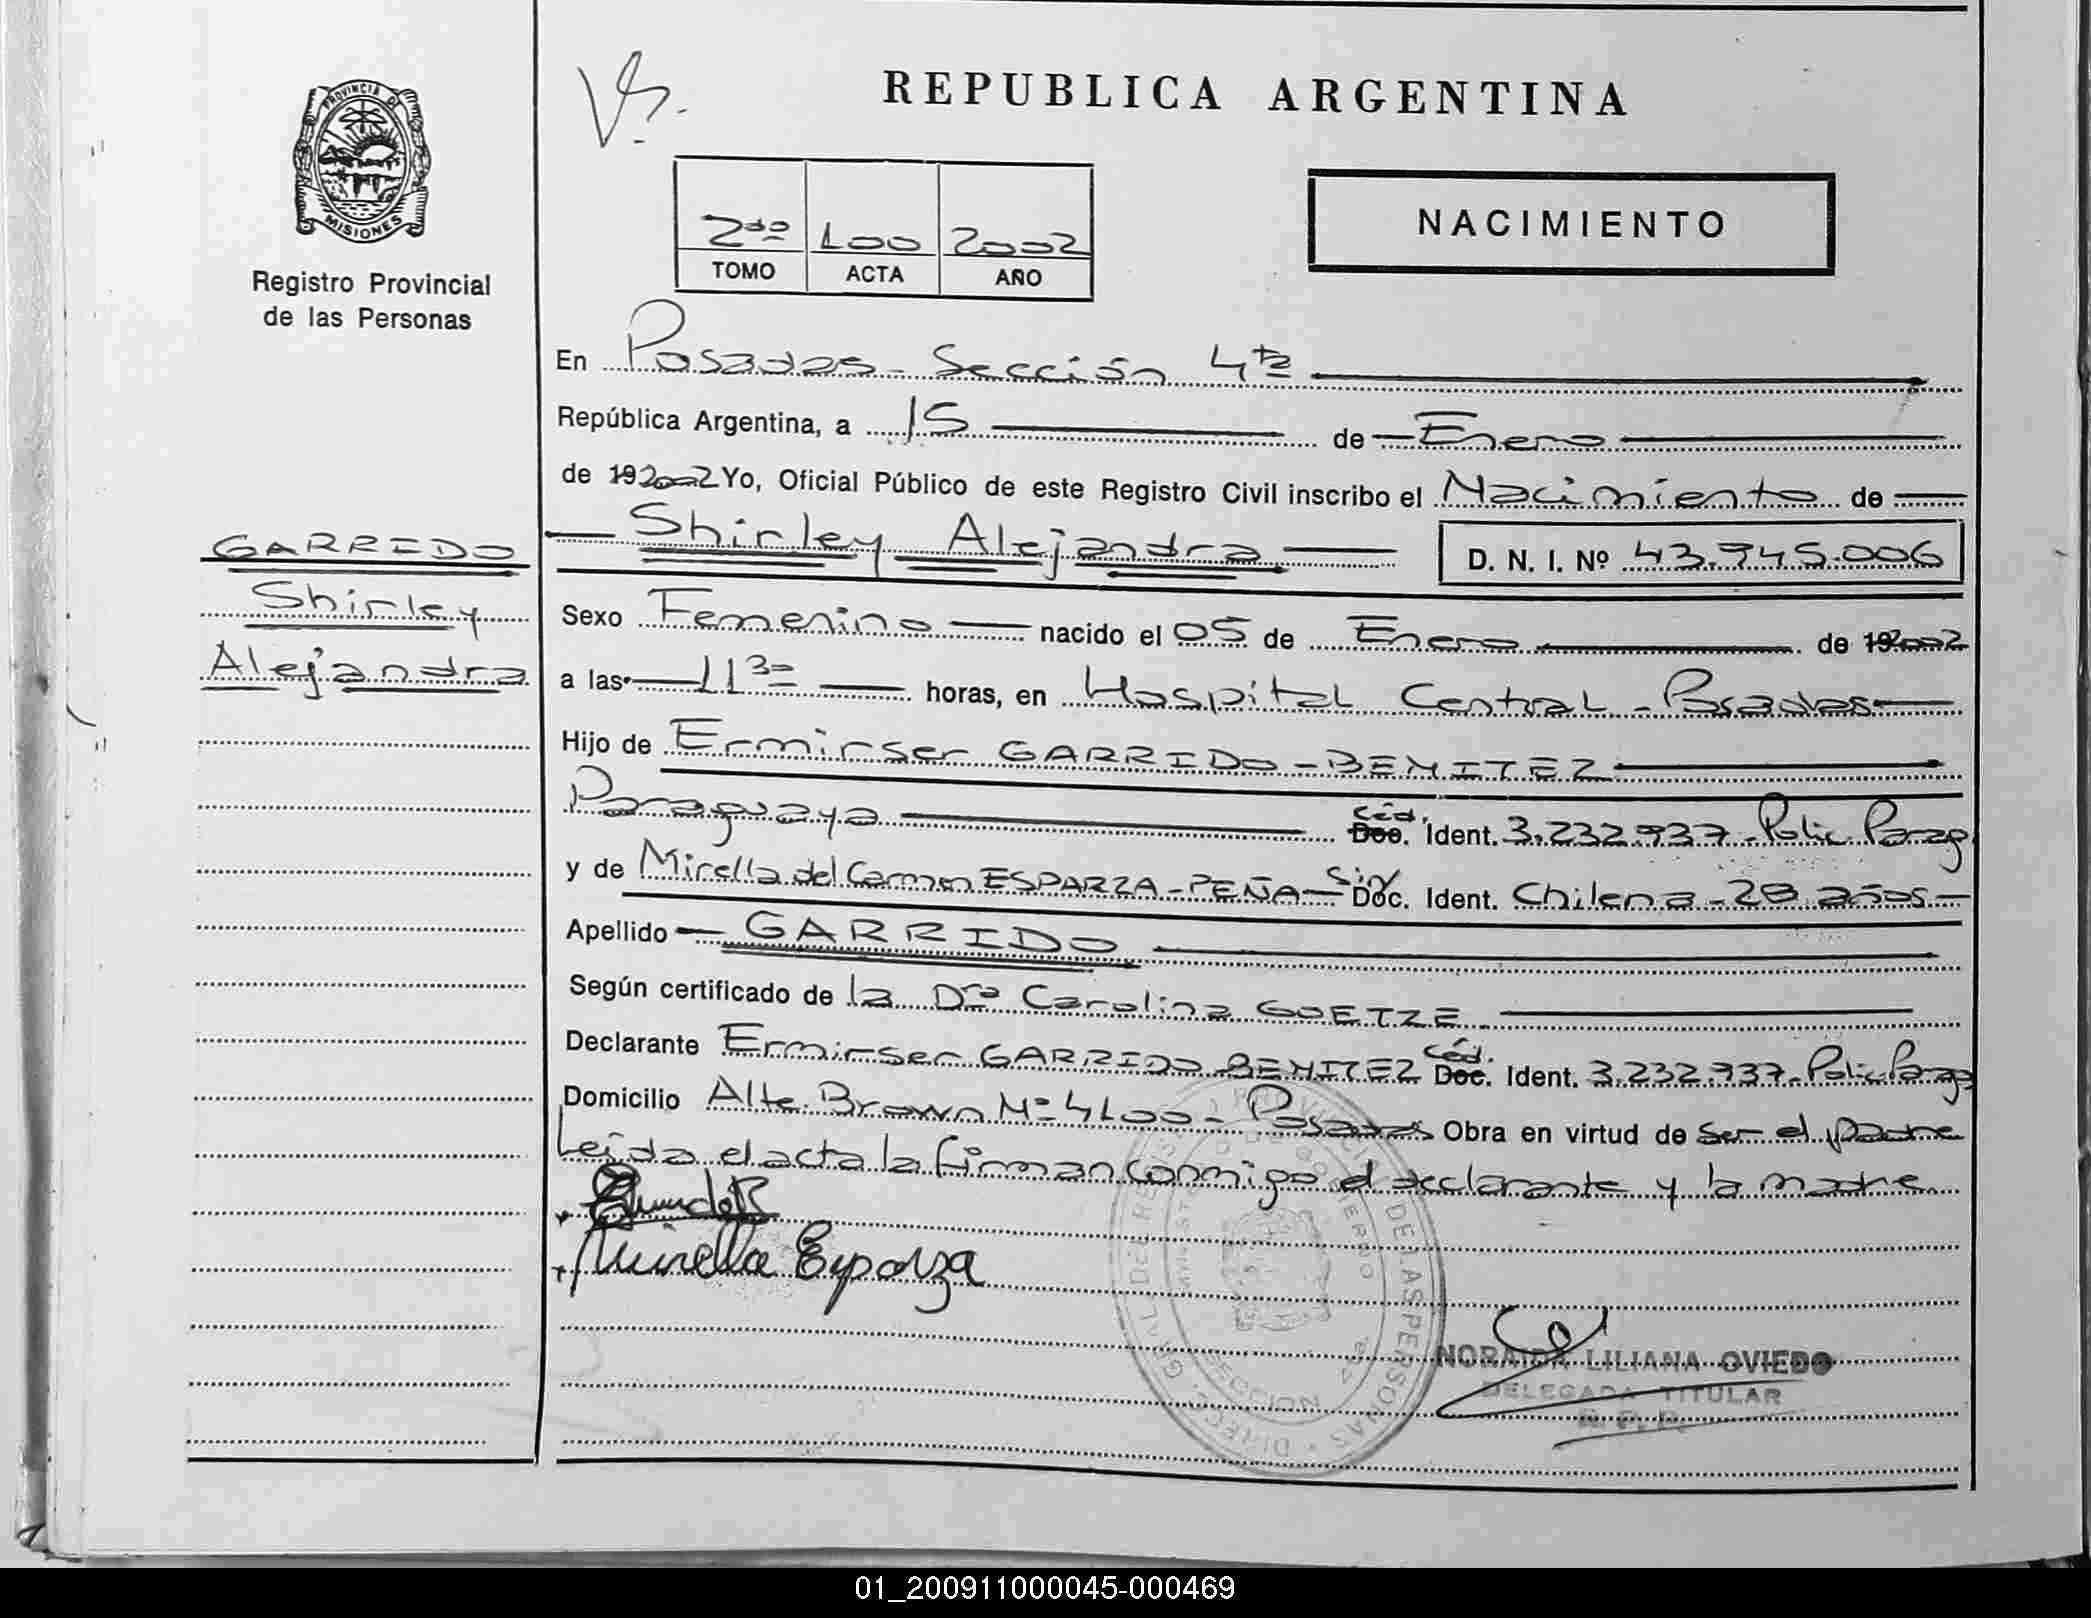 REPUBLICA ARGENTINA
PROVINCIA DE
MISIONES
Registro Provincial
de las Personas
2do 100 2002
TOMO ACTA AÑO
NACIMIENTO
En Posadas - Sección 4ta
República Argentina, a 15 de Enero
de 192002 Yo, Oficial Público de este Registro Civil inscribo el Nacimiento de
Shirley Alejandra D. N. I. Nº 43.945.006
GARRIDO
Shirley
Alejandra
Sexo Femenino nacido el 05 de Enero de 192002
a las 11 30 horas, en Hospital Central - Posadas
Hijo de Ermirser GARRIDO - BENITEZ
Paraguaya Céd. Doc. Ident. 3.232.937 - Polic. Parag
y de Mirella del Carmen ESPARZA - PEÑA - Sin Doc. Ident. Chilena - 28 años -
Apellido GARRIDO
Según certificado de la Dra Carolina GOETZE
Declarante Ermirser GARRIDO BENITEZ Céd. Doc. Ident. 3.232.937 - Polic. Parag
Domicilio Alte. Brown Nº 4100 - Posadas Obra en virtud de ser el padre
Leída el acta la firman conmigo el declarante y la madre
Mirella Esparza
DIRECC. GRAL. DEL REGIST. PROVINCIAL DE LAS PERSONAS
SECCION
NORAIDA LILIANA OVIEDO
DELEGADA TITULAR
R. P. P.
01_200911000045-000469